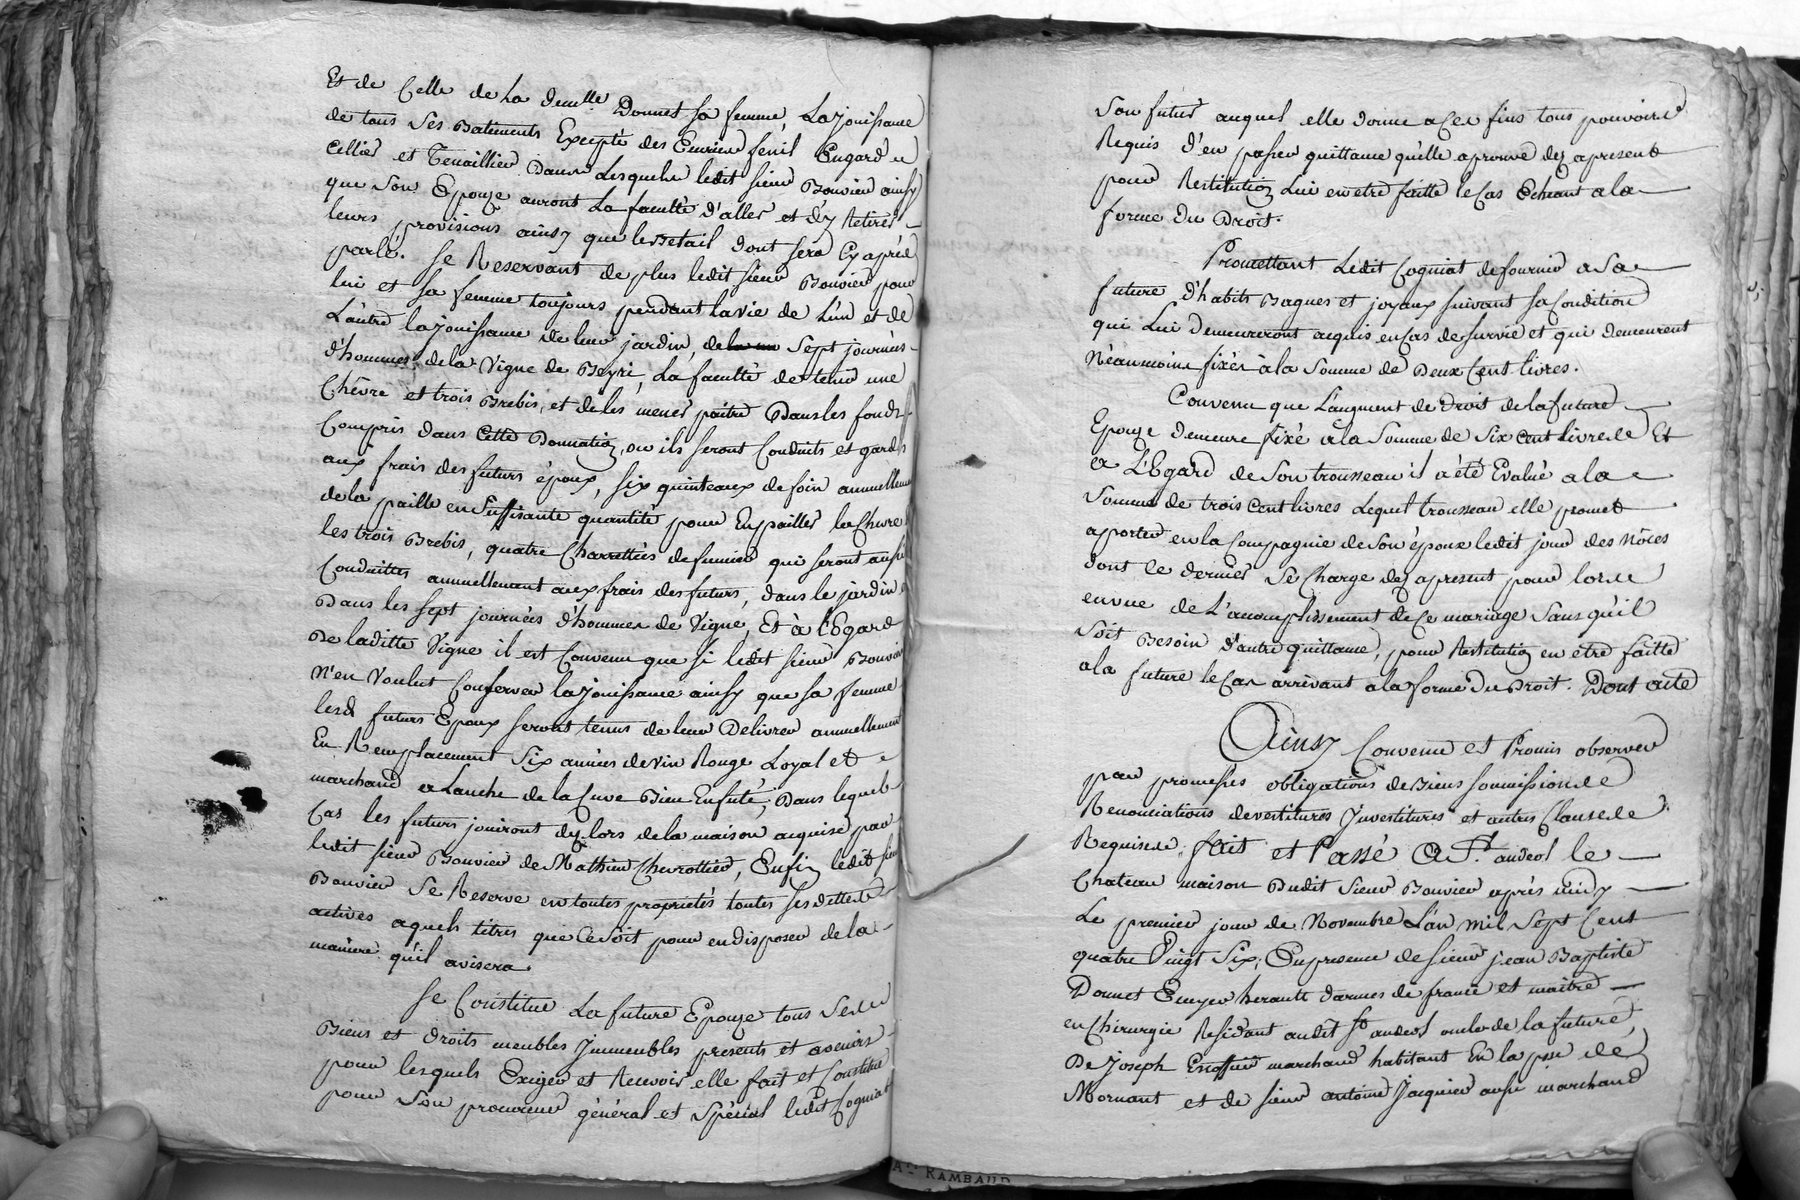 Et de Celle de La demlle Donnet sa femme, La jouissance
de tous ses Batiments Excepté des Ecuries fenil Engard u
Cellier et Tenaillier Dans Lesquels ledit sieur Bouvier ainsy
que Son Epouze auront La faculté d'aller et d'y Retirer
leurs provisions ainsy que le Betail dont sera Cy après
parlé. Se Reservant de plus ledit sieur Bouvier pour
lui et sa femme toujours pendant la vie de L'un et de
L'autre la jouissance de leur jardin, de Sept journées
d'hommes de la Vigne de Beyri, La faculté de tenir une
Chêvre et trois Brebis, et de les mener paitre Dans les fonds
Compris dans Cette Donnation, ou ils seront Conduits et gardés
aux frais des futurs époux, six quinteaux de foin annuellement
de la paille en Suffisante quantité pour Enpailler la Chevre
les trois Brebis, quatre Charrettées de fumier qui seront aussi
Conduittes annuellement aux frais des futurs, dans le jardin
Dans les sept journées d'hommes de Vigne, Et à l'Egard
De laditte Vigne il est Convenu que si ledit sieur Bouvier
N'en Voulut Conserver la jouissance ainsy que sa femme
lesd futurs Epoux seront tenus de leur Delivrer annuellement
En Remplacement Six années de vin Rouge Loyal et
marchand a Lanche de la Cuve Bien Enfuté, Dans lequel
Cas les futurs jouiront dez lors de la maison acquise par
ledit sieur Bouvier de Mathieu Chevrottier, Enfin ledit sieur
Bouvier Se Reserve en toutes proprietés toutes ses dettes
actives a quels titres que Ce soit pour en disposer de la
maniere qu'il avisera.
Se Constitue La future Epouze tous Ses
Biens et droits meubles Jmmeubles presents et avenirs
pour lesquels Exiger et Recevoir elle fait et Constitue
pour Son procureur général et Spécial ledit Cogniat
Son futur auquel elle donne a Ces fins tous pouvoirs
Requis d'en passer quittance qu'elle aprouve dez apresent
pour Restitution Lui en etre faitte le Cas Echeant a la
forme du Droit.
Promettant Ledit Cogniat de fournir a Sa
future d'habits Bagues et joyaux suivant sa Condition
qui Lui demeureront acquis en Cas de survie et qui demeurent
Néanmoins fixés à la Somme de Deux Cent livres.
Convenu que L'augment de Droit de la future
Epouze demeure fixé à la Somme de Six Cent livres Et
a L'Egard de Son trousseau il a été Evalué a la
Somme de trois Cent livres Lequel trousseau elle promet
apporter en la Compagnie de Son époux ledit jour des Nôces
dont Ce dernier Se Charge dez apresent pour lors
en vue de L'accomplissement de Ce mariage Sans qu'il
Soit Besoin d'autre quittance, pour Restitution en être faitte
a la future le Cas arrivant a la forme Du Droit. Dont acte
Ainsy Convenu et Promis observer
par promesses obligations de Biens soumissions
Renonciations devestitures Jnvestitures et autres Clauses
Requises, fait et Passé A St. andeol le
Chateau maison Dudit Sieur Bouvier après midy
Le premier jour de Novembre L'an Mil Sept Cent
quatre Vingt Six, En presence de sieur jean Baptiste
Donnet Ecuyer herault d'armes de france et maitre
en Chirurgie Residant audit St andeol oncle de la future,
De Joseph marchand habitant En la psse de
Mornant et de sieur antoine Jacquier aussi marchand
Ac. RAMBAUD